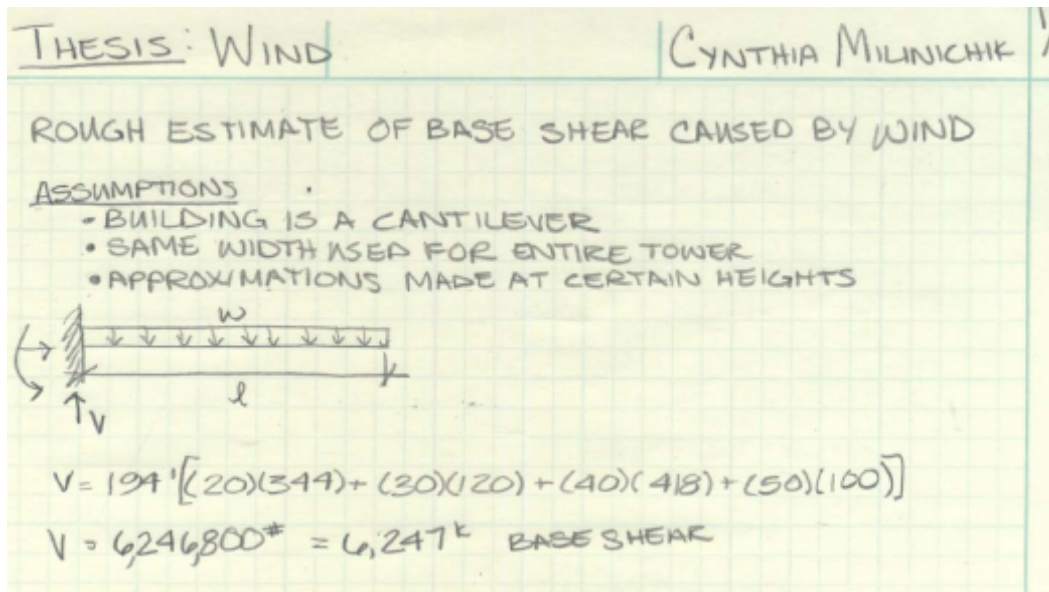 THESIS: WIND
CYNTHIA MILINICHIK
ROUGH ESTIMATE OF BASE SHEAR CAUSED BY WIND
ASSUMPTIONS
• BUILDING IS A CANTILEVER
• SAME WIDTH USED FOR ENTIRE TOWER
• APPROXIMATIONS MADE AT CERTAIN HEIGHTS
w
l
V
V = 194'[(20)(344) + (30)(120) + (40)(418) + (50)(100)]
V = 6,246,800# = 6,247k BASE SHEAR